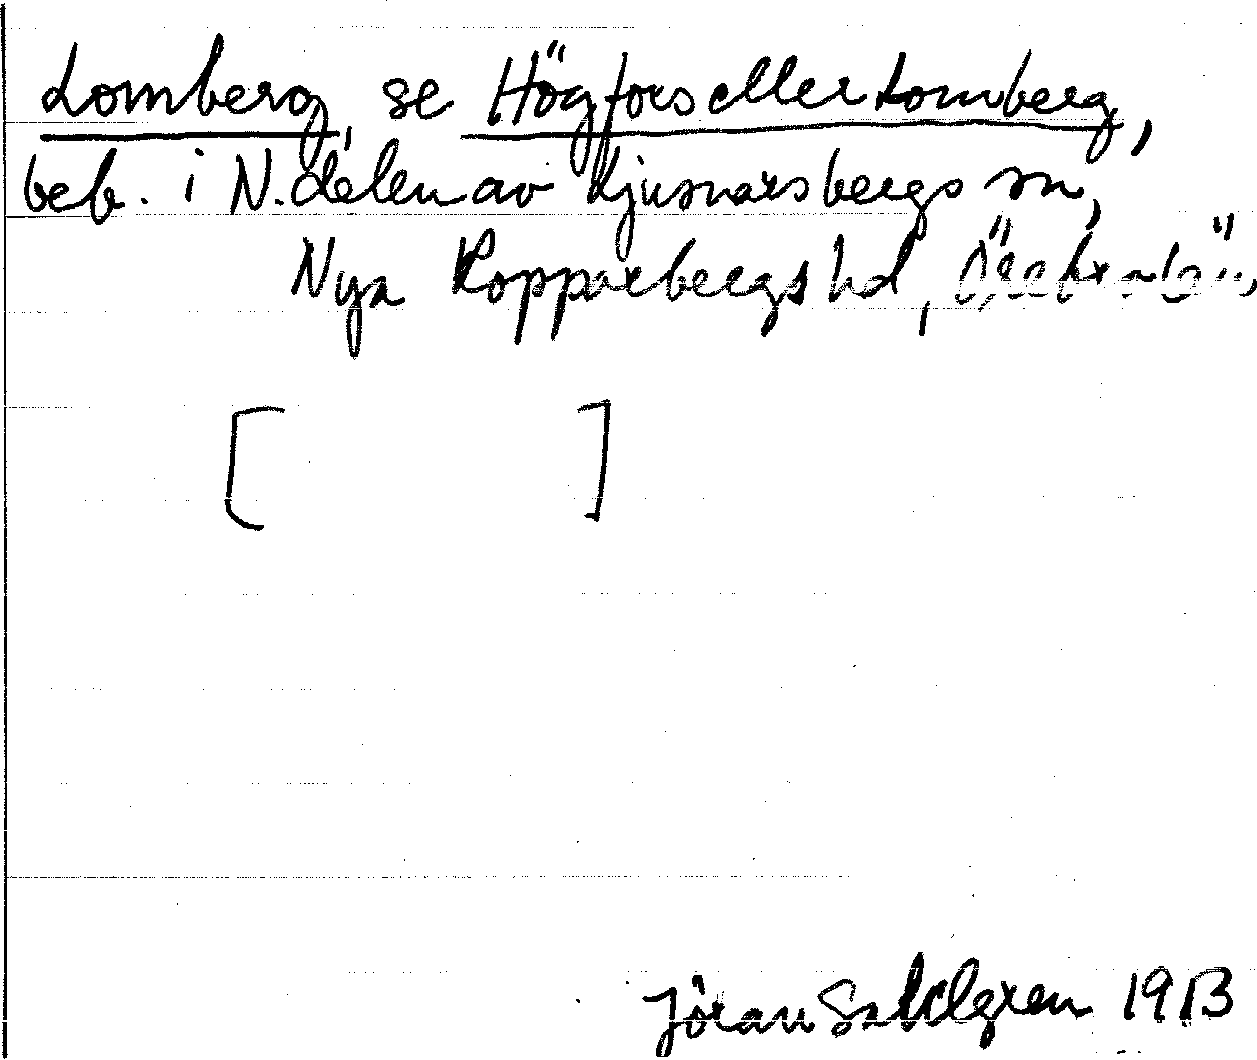 Lomberg, se Högfors eller Lomberg,
beb. i N. delen av Ljusnarsbergs sn,
Nya Kopparbergs hd, Örebro län,
[ ]
Jöran Sahlgren 1913